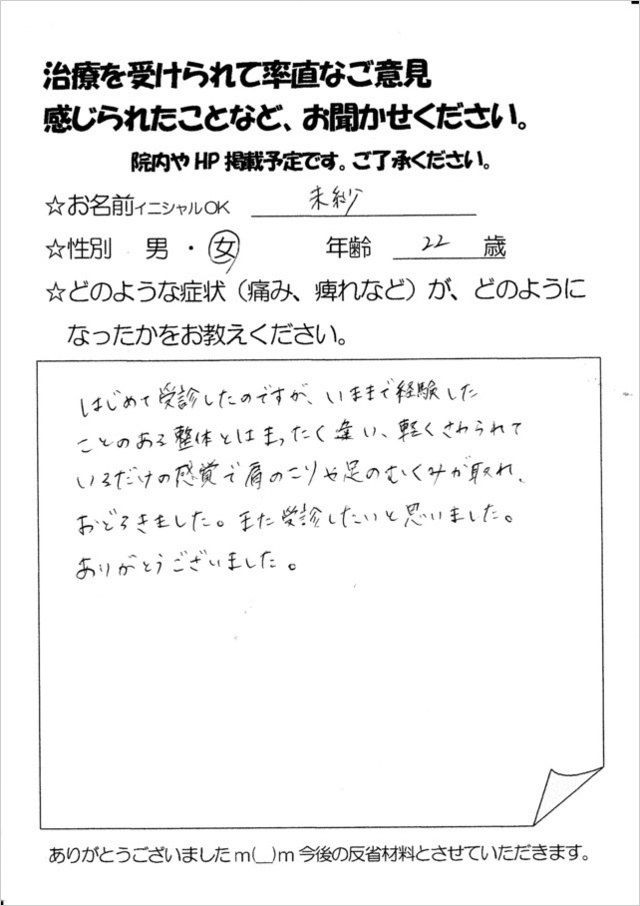 治療を受けられて率直なご意見
感じられたことなど、お聞かせください。
院内やHP掲載予定です。ご了承ください。
☆お名前イニシャルOK 未紗
☆性別 男・女 年齢 22 歳
☆どのような症状(痛み、痺れなど)が、どのように
なったかをお教えください。
はじめて受診したのですが、いままで経験した
ことのある整体とはまったく違い、軽くさわられて
いるだけの感覚で肩のこりや足のむくみが取れ、
おどろきました。また受診したいと思いました。
ありがとうございました。
ありがとうございましたm(__)m今後の反省材料とさせていただきます。